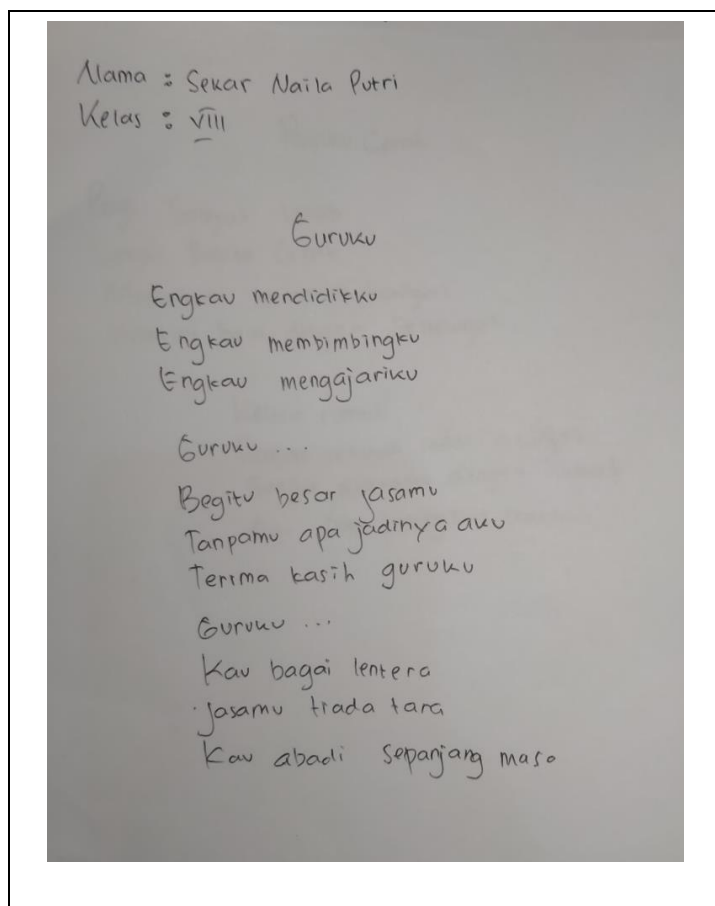 Nama : Sekar Naila Putri
Kelas : VIII
Guruku
Engkau mendidikku
Engkau membimbingku
Engkau mengajariku
Guruku ...
Begitu besar jasamu
Tanpamu apa jadinya aku
Terima kasih guruku
Guruku ...
Kau bagai lentera
jasamu tiada tara
Kau abadi sepanjang masa